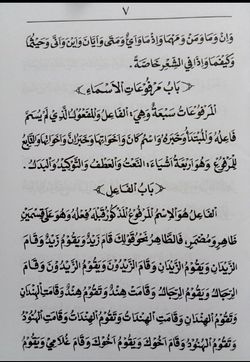 ٧
وَإِنْ وَمَا وَمَنْ وَمَهْمَا وَإِذْمَا وَأَيٌّ وَمَتَى وَأَيَّانَ وَأَيْنَ وَأَنَّى وَحَيْثُمَا
وَكَيْفَمَا وَإِذًا فِي الشِّعْرِ خَاصَّةً .
﴿ بَابُ مَرْفُوعَاتِ الْأَسْمَاءِ ﴾
الْمَرْفُوعَاتُ سَبْعَةٌ وَهِيَ : الْفَاعِلُ وَالْمَفْعُولُ الَّذِي لَمْ يُسَمَّ
فَاعِلُهُ وَالْمُبْتَدَأُ وَخَبَرُهُ وَاسْمُ كَانَ وَأَخَوَاتِهَا وَخَبَرُ إِنَّ وَأَخَوَاتِهَا وَالتَّابِعُ
لِلْمَرْفُوعِ وَهُوَ أَرْبَعَةُ أَشْيَاءَ : النَّعْتُ وَالْعَطْفُ وَالتَّوْكِيدُ وَالْبَدَلُ .
﴿ بَابُ الْفَاعِلِ ﴾
الْفَاعِلُ هُوَ الْاِسْمُ الْمَرْفُوعُ الْمَذْكُورُ قَبْلَهُ فِعْلُهُ وَهُوَ عَلَى قِسْمَيْنِ
ظَاهِرٍ وَمُضْمَرٍ ، فَالظَّاهِرُ نَحْوُ قَوْلِكَ قَامَ زَيْدٌ وَيَقُومُ زَيْدٌ وَقَامَ
الزَّيْدَانِ وَيَقُومُ الزَّيْدَانِ وَقَامَ الزَّيْدُونَ وَيَقُومُ الزَّيْدُونَ وَقَامَ
الرِّجَالُ وَيَقُومُ الرِّجَالُ وَقَامَتْ هِنْدٌ وَتَقُومُ هِنْدٌ وَقَامَتِ الْهِنْدَانِ
وَتَقُومُ الْهِنْدَانِ وَقَامَتِ الْهِنْدَاتُ وَتَقُومُ الْهِنْدَاتُ وَقَامَتِ الْهُنُودُ
وَتَقُومُ الْهُنُودُ وَقَامَ أَخُوكَ وَيَقُومُ أَخُوكَ وَقَامَ غُلَامِي وَيَقُومُ